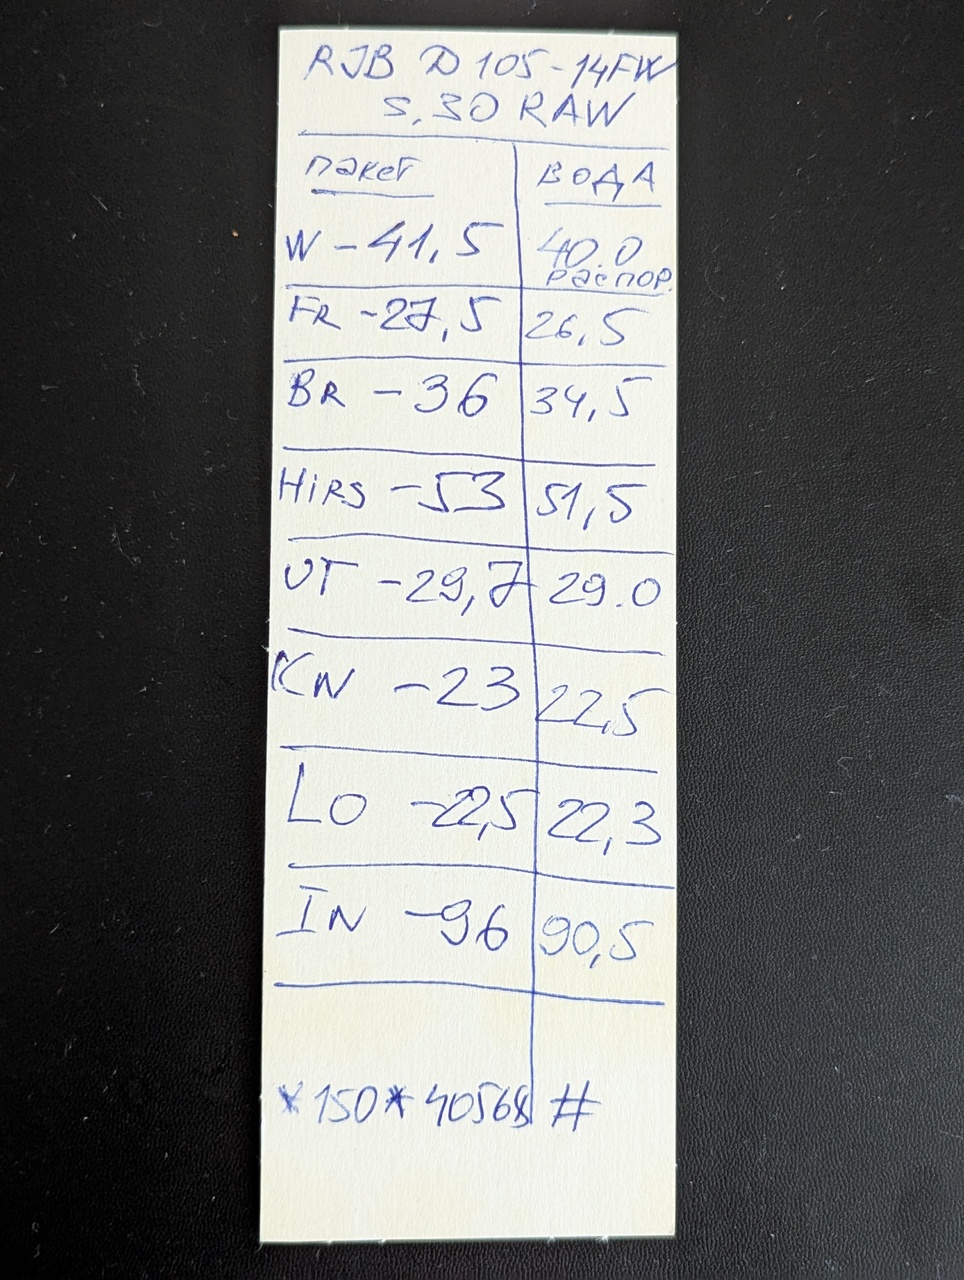 RJB D 105-14FW
5,30 RAW
пакет ВОДА
W - 41,5 40.0
распор.
FR - 27,5 26,5
BR - 36 34,5
HiRS - 53 51,5
UT - 29,7 29.0
KN - 23 22,5
LO - 22,5 22,3
IN - 96 90,5
*150* #